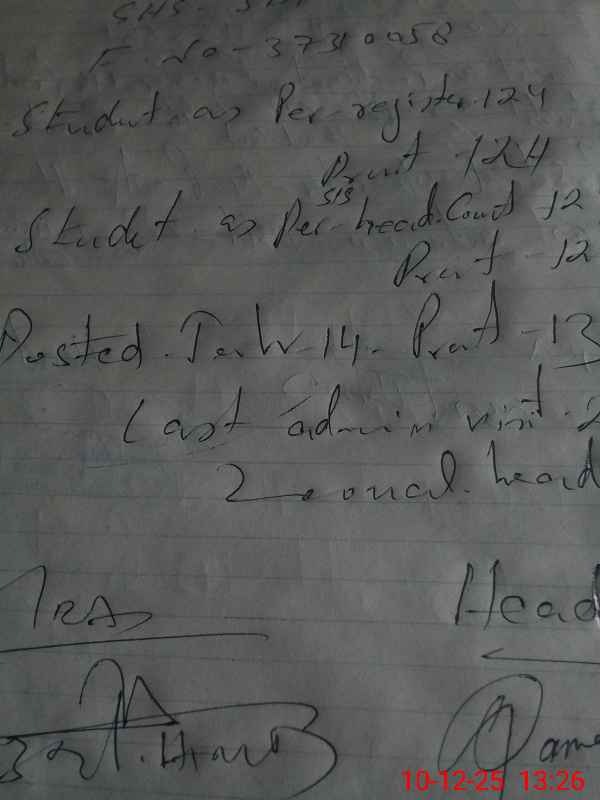 F. No - 37310058
Student as Per register 124
Prent 124
SIS
Student as Per head Count 12
Prent - 12
Posted. 14. Prent - 13
Last admin visit. 2
Zonal head
Head
10-12-25 13:26